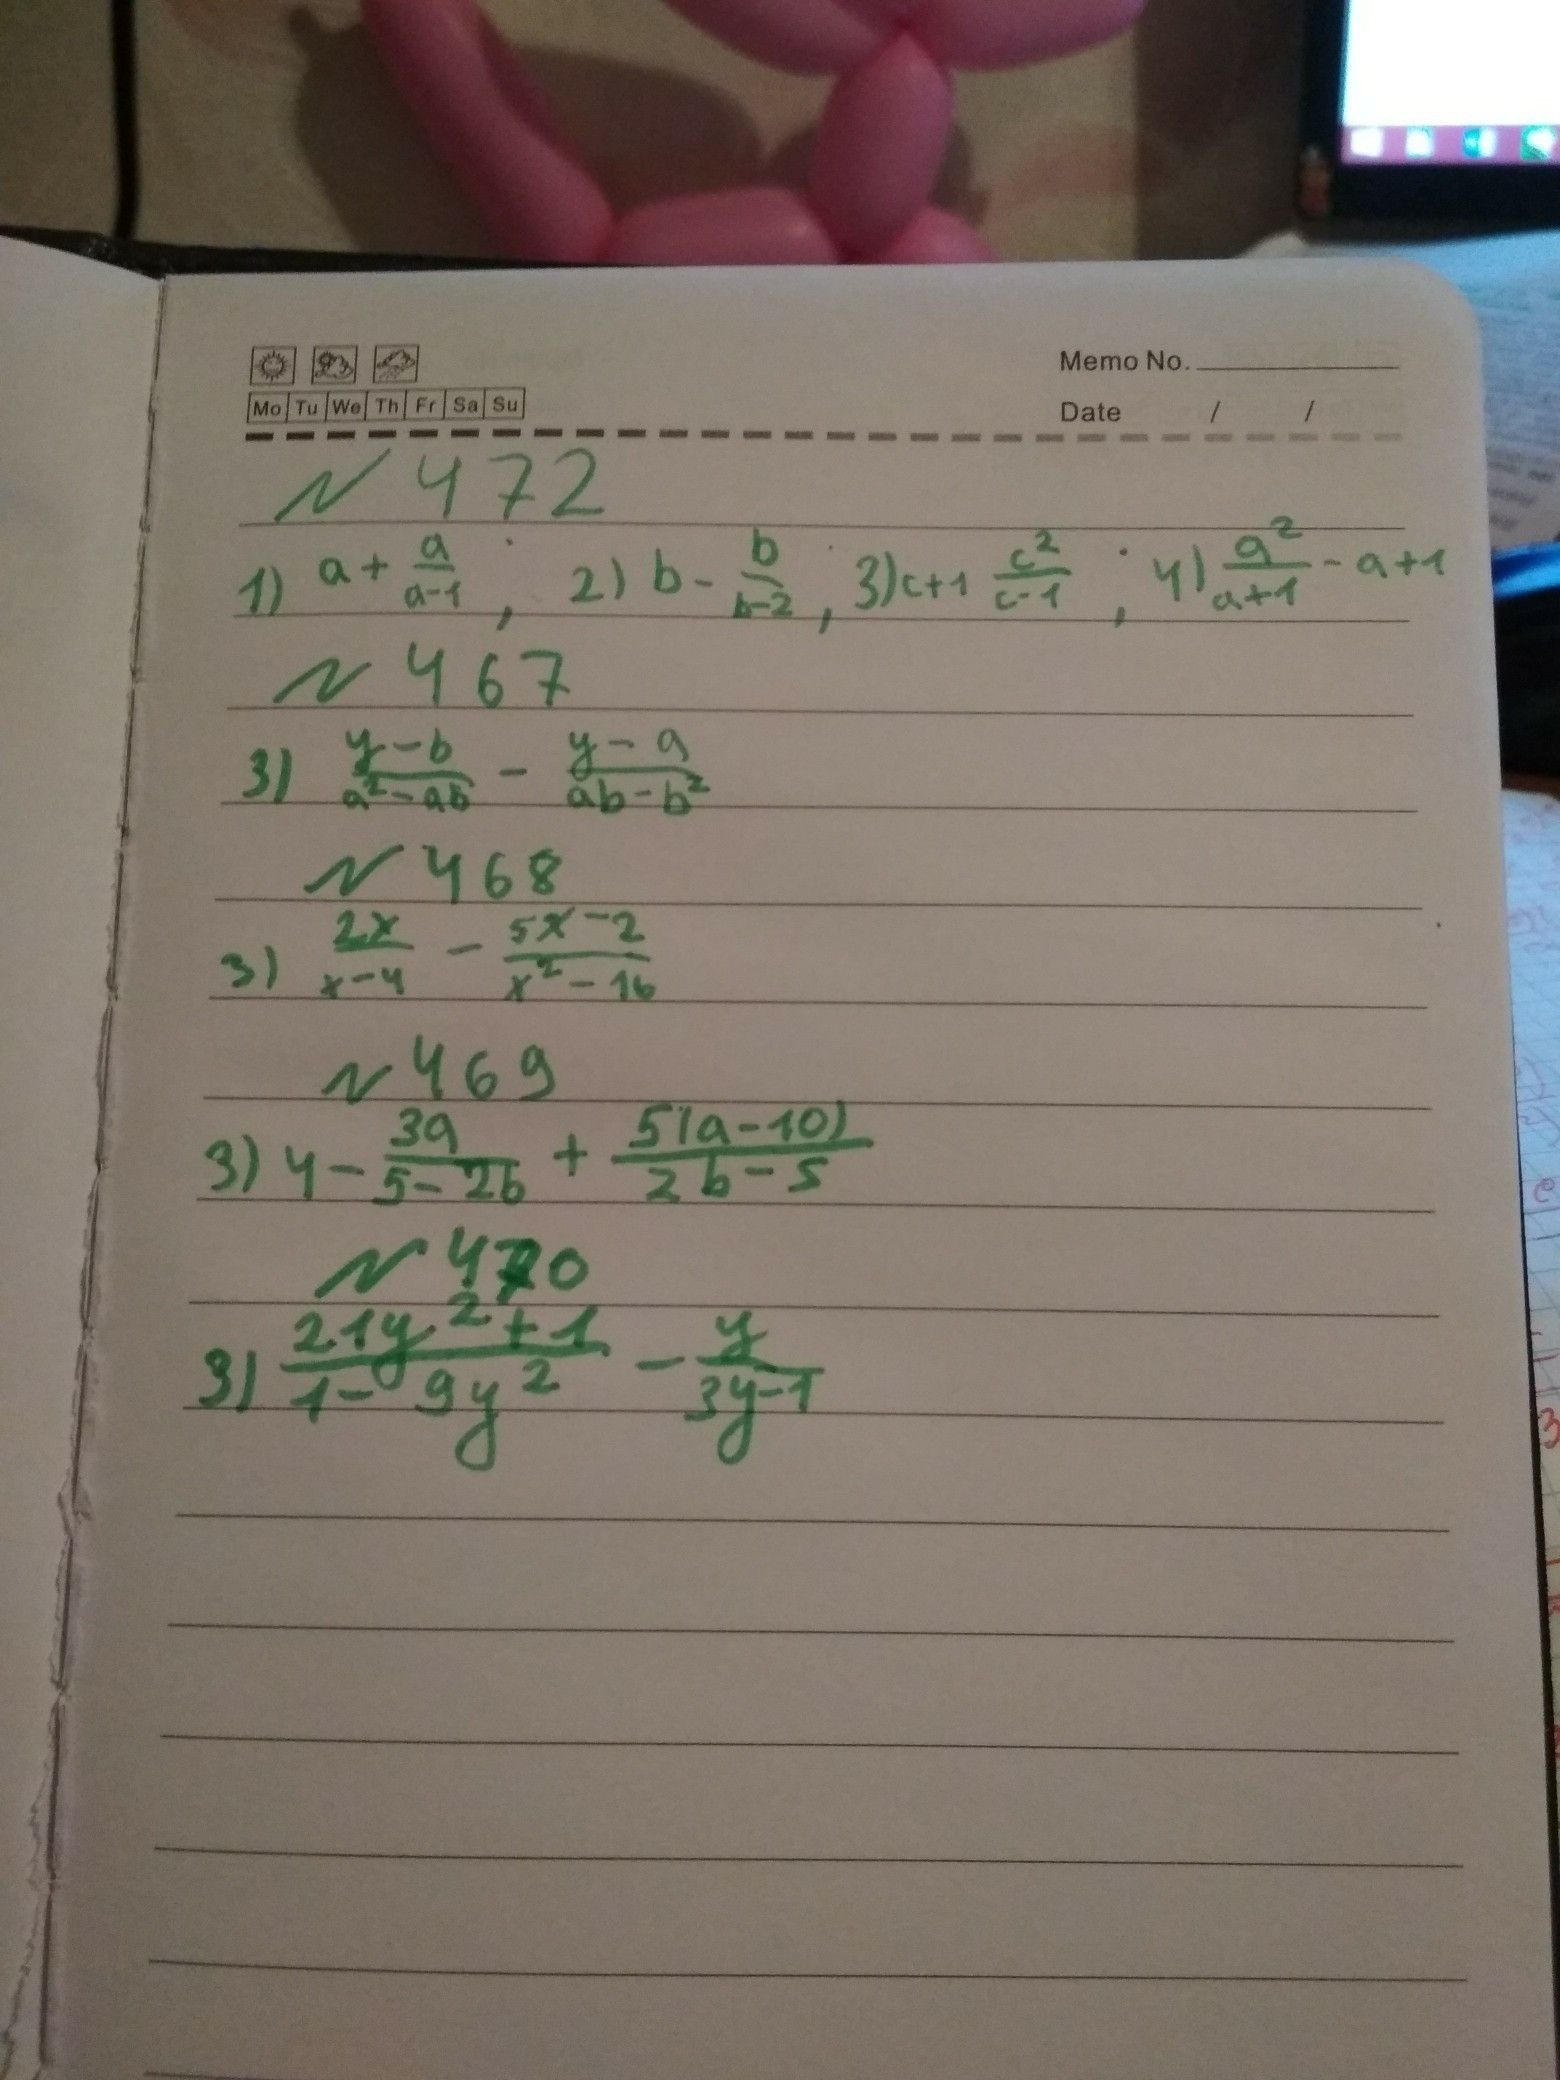 Mo Tu We Th Fr Sa Su
Memo No.
Date / /
N 472
1) a + a/(a-1) ; 2) b - b/(b-2) ; 3) c+1 c²/(c-1) ; 4) a²/(a+1) - a+1
N 467
3) (y-b)/(a²-ab) - (y-a)/(ab-b²)
N 468
3) 2x/(x-4) - (5x-2)/(x²-16)
N 469
3) 4 - 3a/(5-2b) + 5(a-10)/(2b-5)
N 470
3) (21y²+1)/(1-9y²) - y/(3y-1)